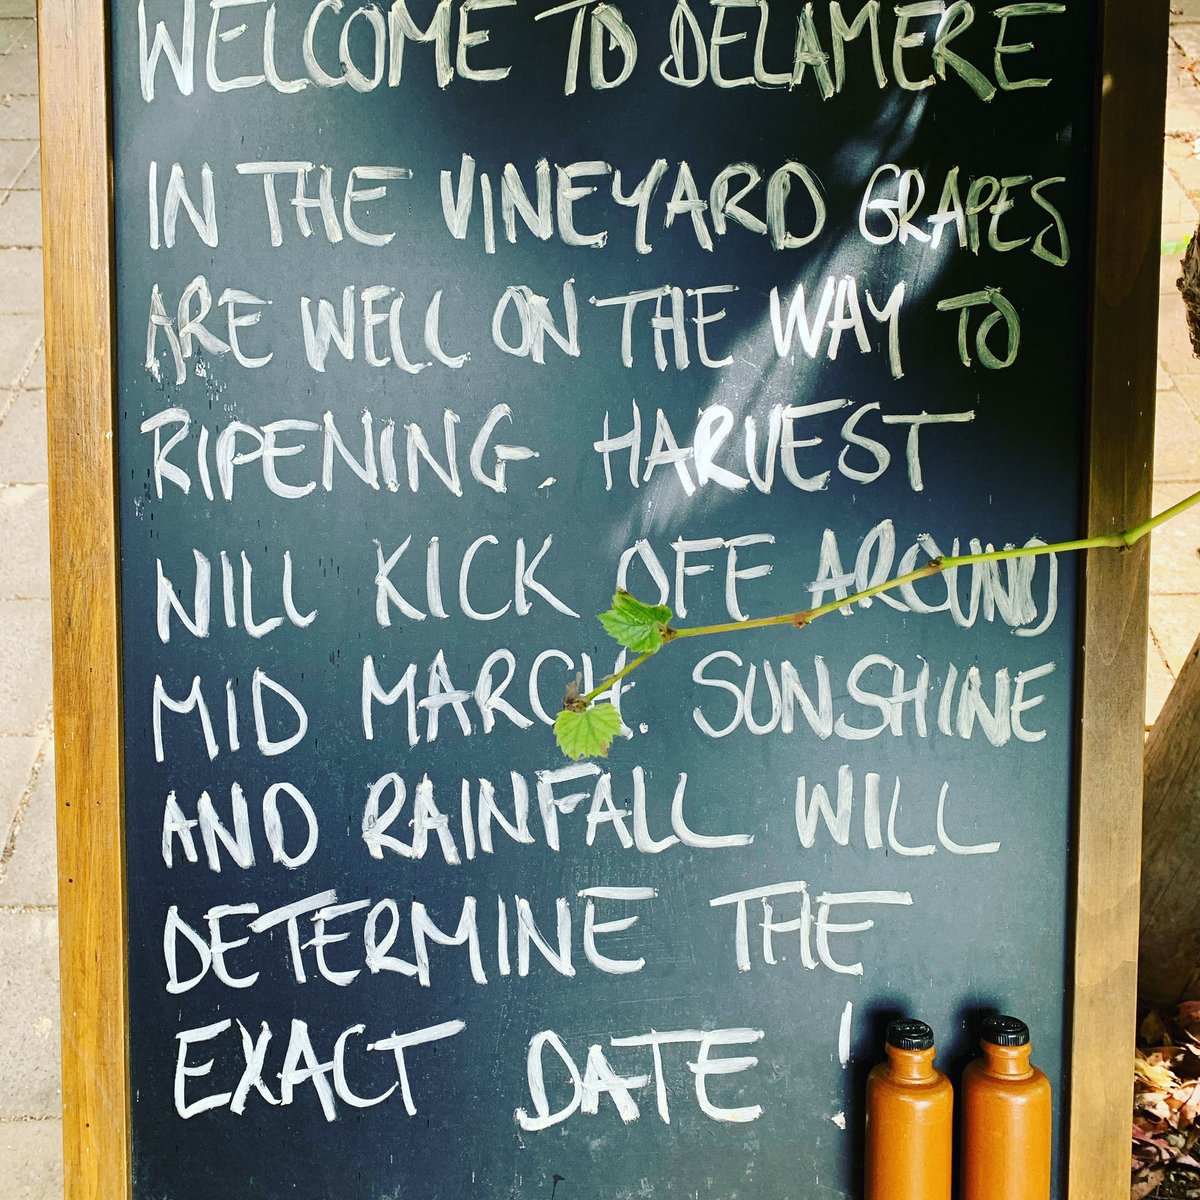 WELCOME TO DELAMERE
IN THE VINEYARD GRAPES
ARE WELL ON THE WAY TO
RIPENING. HARVEST
WILL KICK OFF AROUND
MID MARCH. SUNSHINE
AND RAINFALL WILL
DETERMINE THE
EXACT DATE !